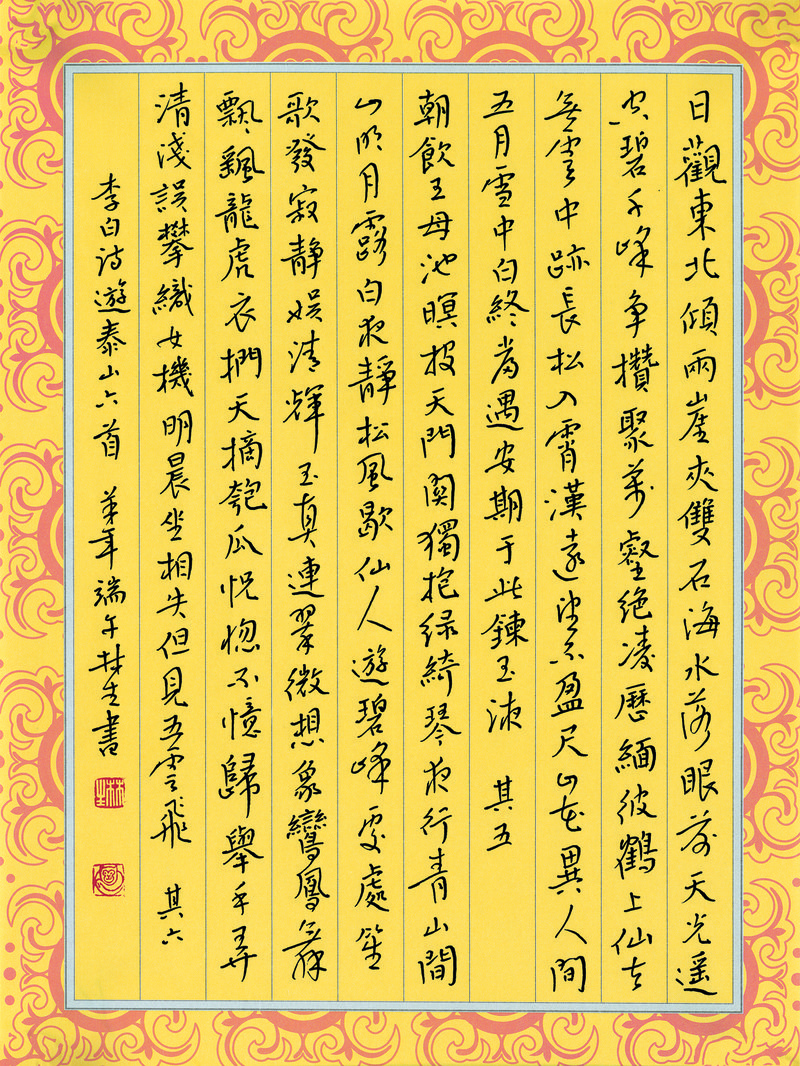 日觀東北傾兩崖夾雙石海水落眼前天光遥
空碧千峰争攢聚萬壑絶凌歷緬彼鶴上仙去
無雲中跡長松入霄漢遠望不盈尺山花異人間
五月雪中白終當遇安期于此鍊玉液 其五
朝飲王母池暝投天門関獨抱緑綺琴夜行青山間
山明月露白夜靜松風歇仙人遊碧峰處處笙
歌發寂靜娱清輝玉真連翠微想象鸞鳳舞
飄飄龍虎衣捫天摘匏瓜怳惚不憶歸舉手弄
清淺誤攀織女機明晨坐相失但見五雲飛 其六
李白詩遊泰山六首 年端午林生書
林生